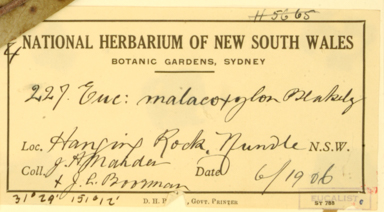 H 5665
NATIONAL HERBARIUM OF NEW SOUTH WALES
BOTANIC GARDENS, SYDNEY
227. Euc: malacoxylon Blakely
Loc. Hanging Rock, Nundle N.S.W.
Coll. Date 6/1906
& J. L. Boorman
31° 29' 151° 12'
D.H. GOVT. PRINTER
SY 788